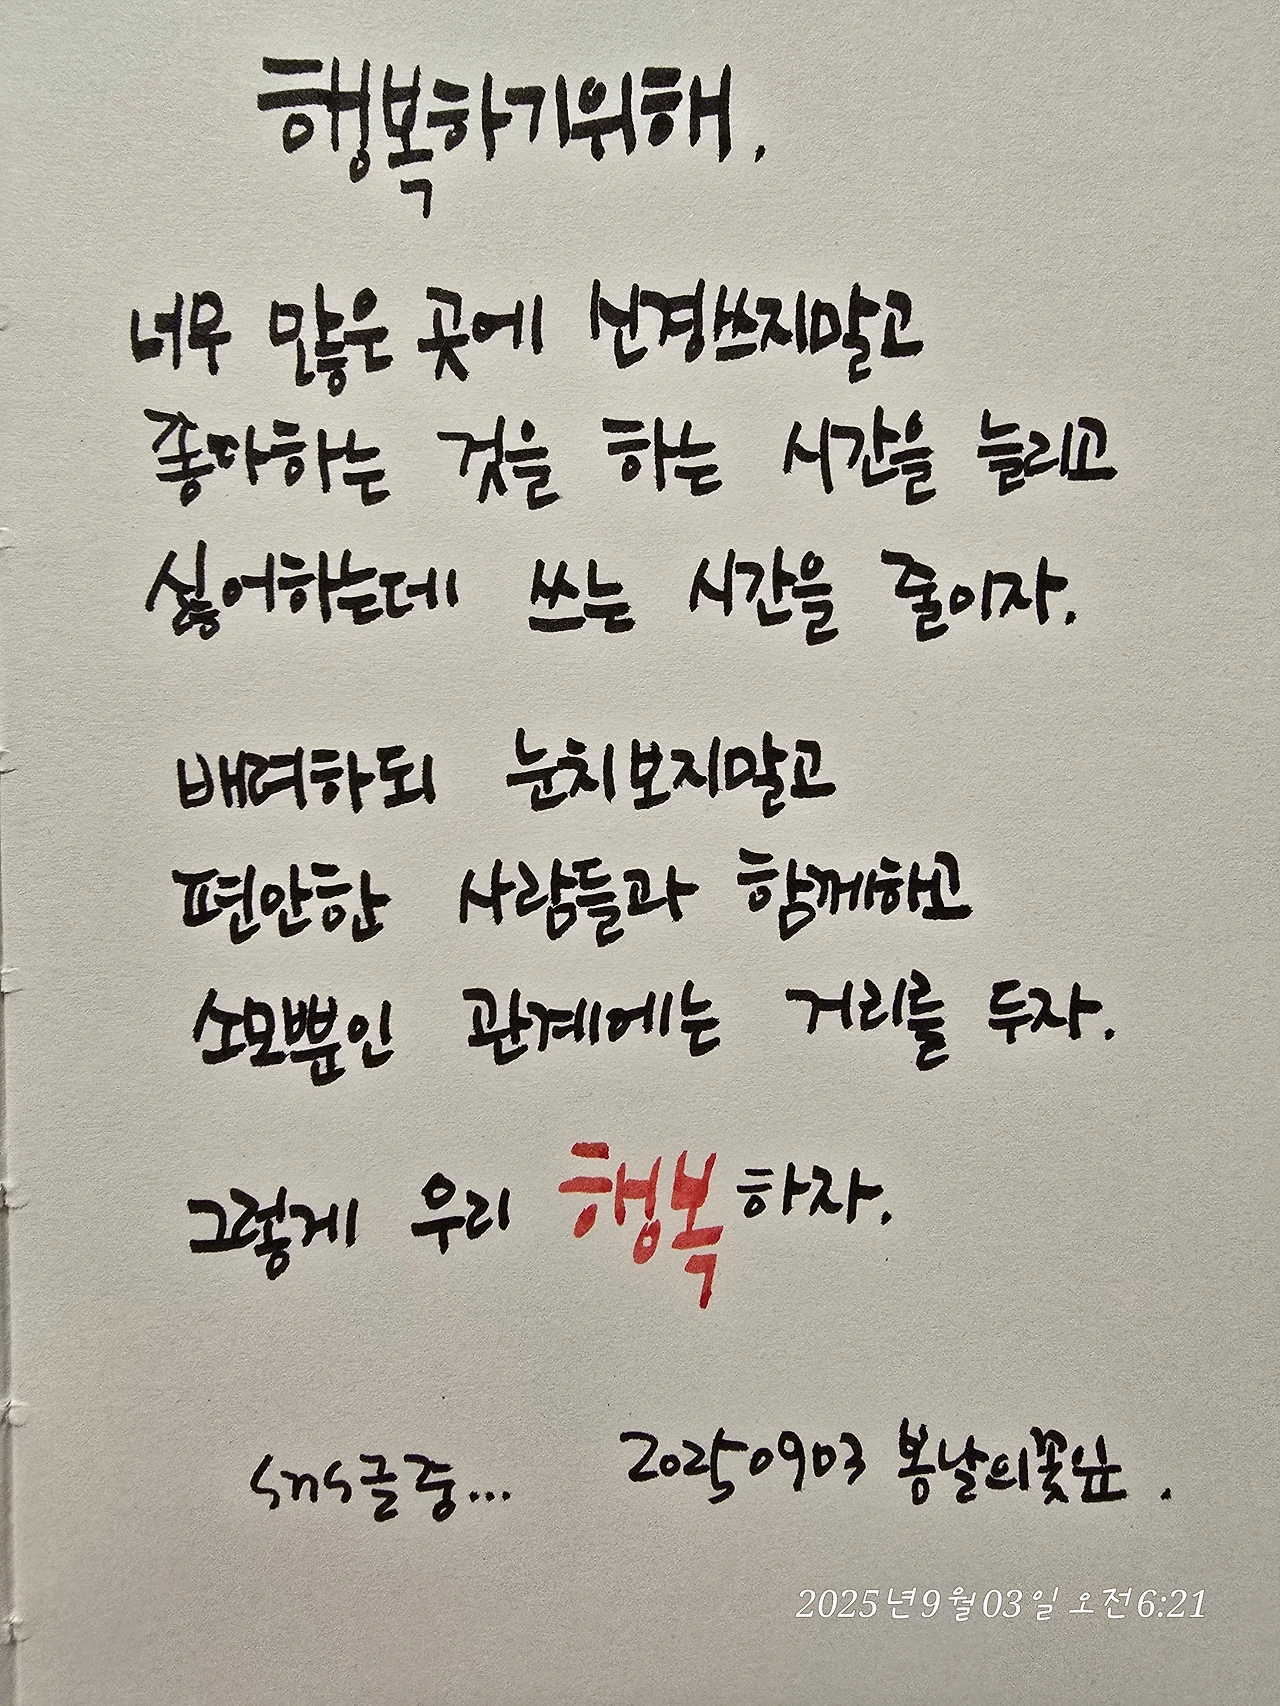 행복하기위해.
너무 많은 곳에 신경쓰지말고
좋다하는 것을 하는 시간을 늘리고
싫어하는데 쓰는 시간을 줄이자.
배려하되 눈치보지말고
편안한 사람들과 함께하고
소모뿐인 관계에는 거리를 두자.
그렇게 우리 행복하자.
sns글중... 20250903 봄날의꽃잎.
2025년9월03일 오전6:21